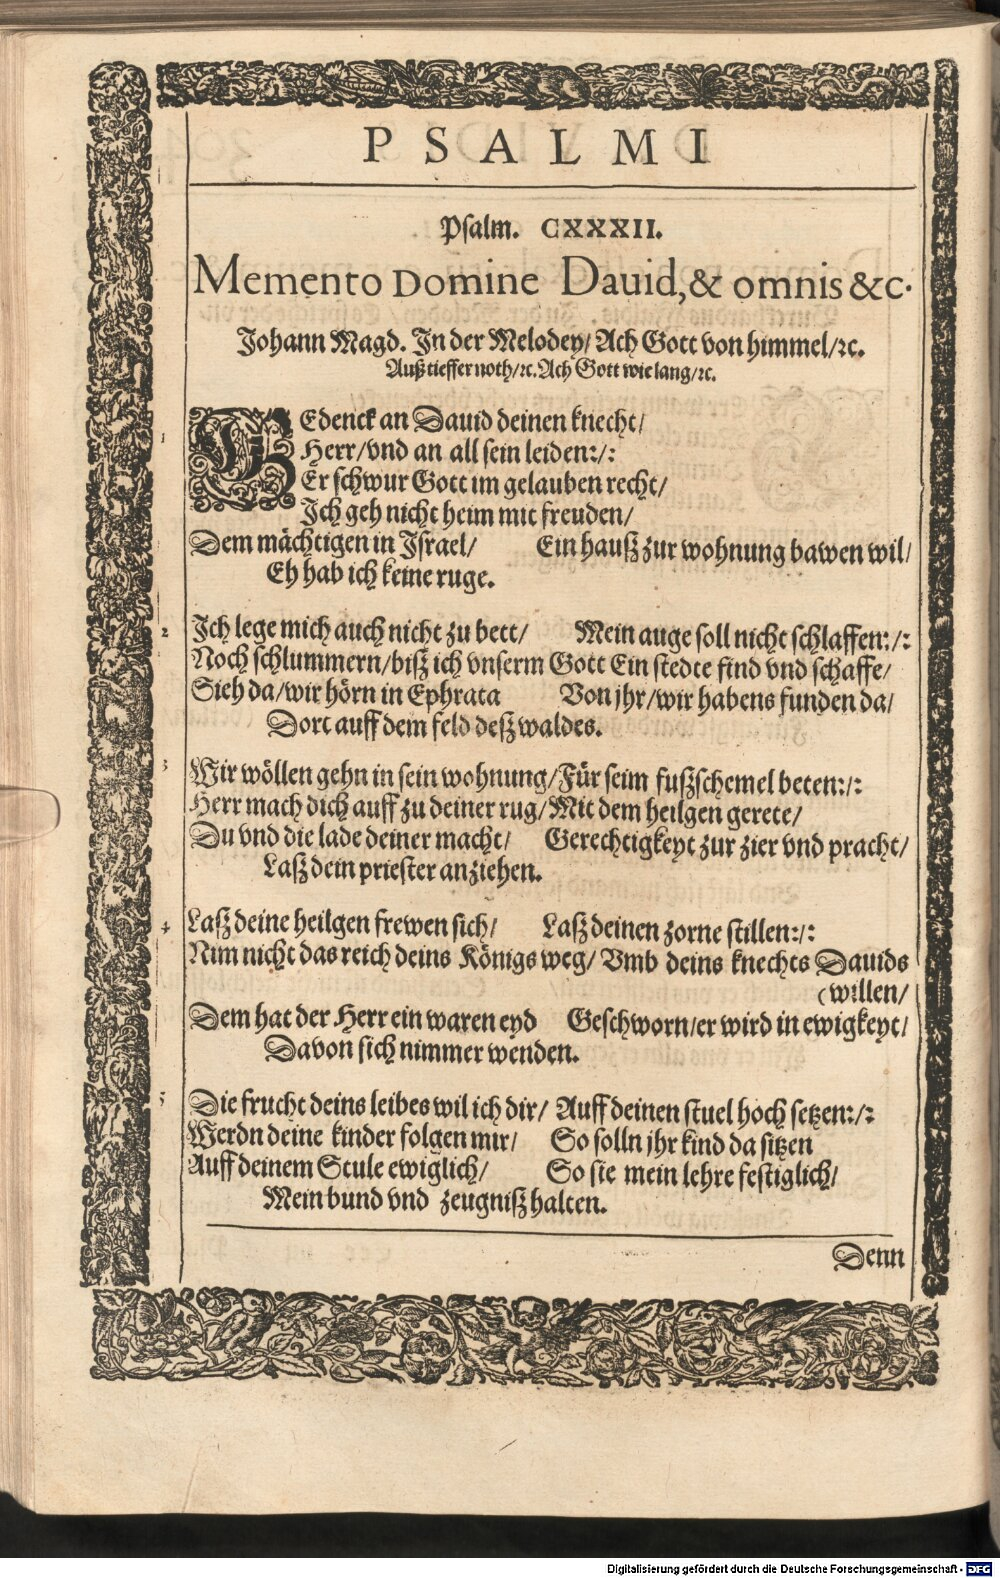 PSALMI
Psalm. CXXXII.
Memento Domine Dauid, & omnis &c.
Johann Magd. In der Melodey/ Ach Gott von himmel/ ꝛc.
Auß tieffer noth/ ꝛc. Ach Gott wie lang/ ꝛc.
1 GEdenck an Dauid deinen knecht/
Herr/ vnd an all sein leiden:/:
Er schwur Gott im gelauben recht/
Ich geh nicht heim mit freuden/
Dem mächtigen in Israel/ Ein hauß zur wohnung bawen wil/
Eh hab ich keine ruge.
2 Ich lege mich auch nicht zu bett/ Mein auge soll nicht schlaffen:/:
Noch schlummern/ biß ich vnserm Gott Ein stedte find vnd schaffe/
Sieh da/ wir hörn in Ephrata Von jhr/ wir habens funden da/
Dort auff dem feld deß waldes.
3 Wir wöllen gehn in sein wohnung/ Für seim fußschemel beten:/:
Herr mach dich auff zu deiner rug/ Mit dem heilgen gerete/
Du vnd die lade deiner macht/ Gerechtigkeyt zur zier vnd pracht/
Laß dein priester anziehen.
4 Laß deine heilgen frewen sich/ Laß deinen zorne stillen:/:
Nim nicht das reich deins Königs weg/ Vmb deins knechts Dauids
(willen/
Dem hat der Herr ein waren eyd Geschworn/ er wird in ewigkeyt/
Davon sich nimmer wenden.
5 Die frucht deins leibes wil ich dir/ Auff deinen stuel hoch setzen:/:
Werdn deine kinder folgen mir/ So solln jhr kind da sitzen
Auff deinem Stule ewiglich/ So sie mein lehre festiglich/
Mein bund vnd zeugniß halten.
Denn
Digitalisierung gefördert durch die Deutsche Forschungsgemeinschaft - DFG